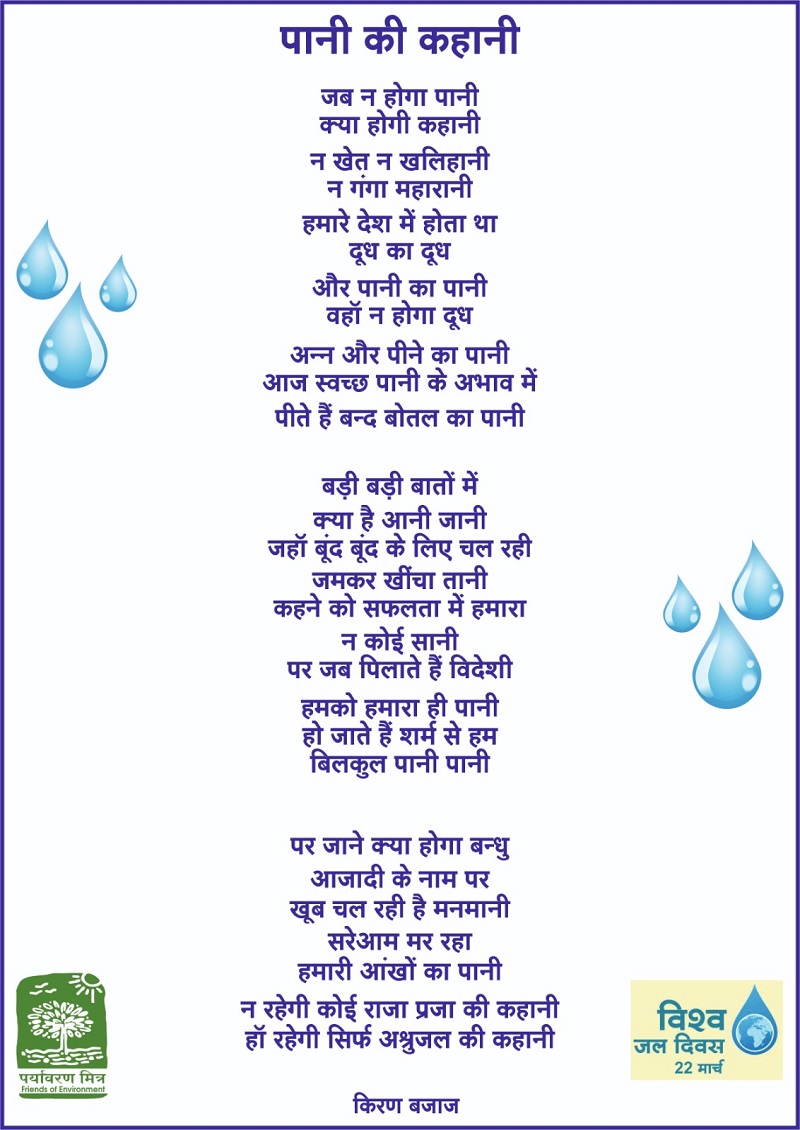 पानी की कहानी
जब न होगा पानी
क्या होगी कहानी
न खेत न खलिहानी
न गंगा महारानी
हमारे देश में होता था
दूध का दूध
और पानी का पानी
वहॉ न होगा दूध
अन्न और पीने का पानी
आज स्वच्छ पानी के अभाव में
पीते हैं बन्द बोतल का पानी
बड़ी बड़ी बातों में
क्या है आनी जानी
जहॉ बूंद बूंद के लिए चल रही
जमकर खींचा तानी
कहने को सफलता में हमारा
न कोई सानी
पर जब पिलाते हैं विदेशी
हमको हमारा ही पानी
हो जाते हैं शर्म से हम
बिलकुल पानी पानी
पर जाने क्या होगा बन्धु
आजादी के नाम पर
खूब चल रही है मनमानी
सरेआम मर रहा
हमारी आंखों का पानी
न रहेगी कोई राजा प्रजा की कहानी
हॉ रहेगी सिर्फ अश्रुजल की कहानी
किरण बजाज
पर्यावरण मित्र
Friends of Environment
विश्व
जल दिवस
22 मार्च